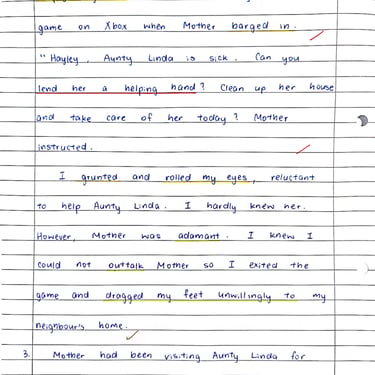 game on Xbox when Mother barged in.
"Hayley, Aunty Linda is sick. Can you
lend her a helping hand? Clean up her house
and take care of her today? Mother
instructed.
I grunted and rolled my eyes, reluctant
to help Aunty Linda. I hardly knew her.
However, Mother was adamant. I knew I
could not outtalk Mother so I exited the
game and dragged my feet unwillingly to my
neighbour's home.
3. Mother had been visiting Aunty Linda for